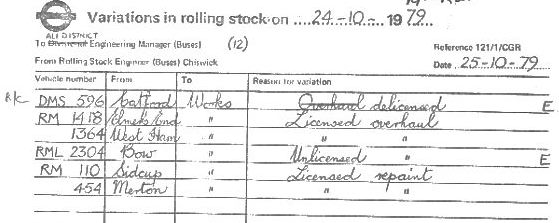 Variations in rolling stock on 24-10- 1979
ALL DISTRICT
To Divisional Engineering Manager (Buses) (12) Reference 121/1/CGR
From Rolling Stock Engineer (Buses) Chiswick Date 25-10-79
Vehicle number From To Reason for variation
DMS 596 Catford Works Overhaul delicensed E
RM 1418 Elmers End " Licensed overhaul
1364 West Ham " " "
RML 2304 Bow " Unlicensed " E
RM 110 Sidcup " Licensed repaint
454 Merton " " "